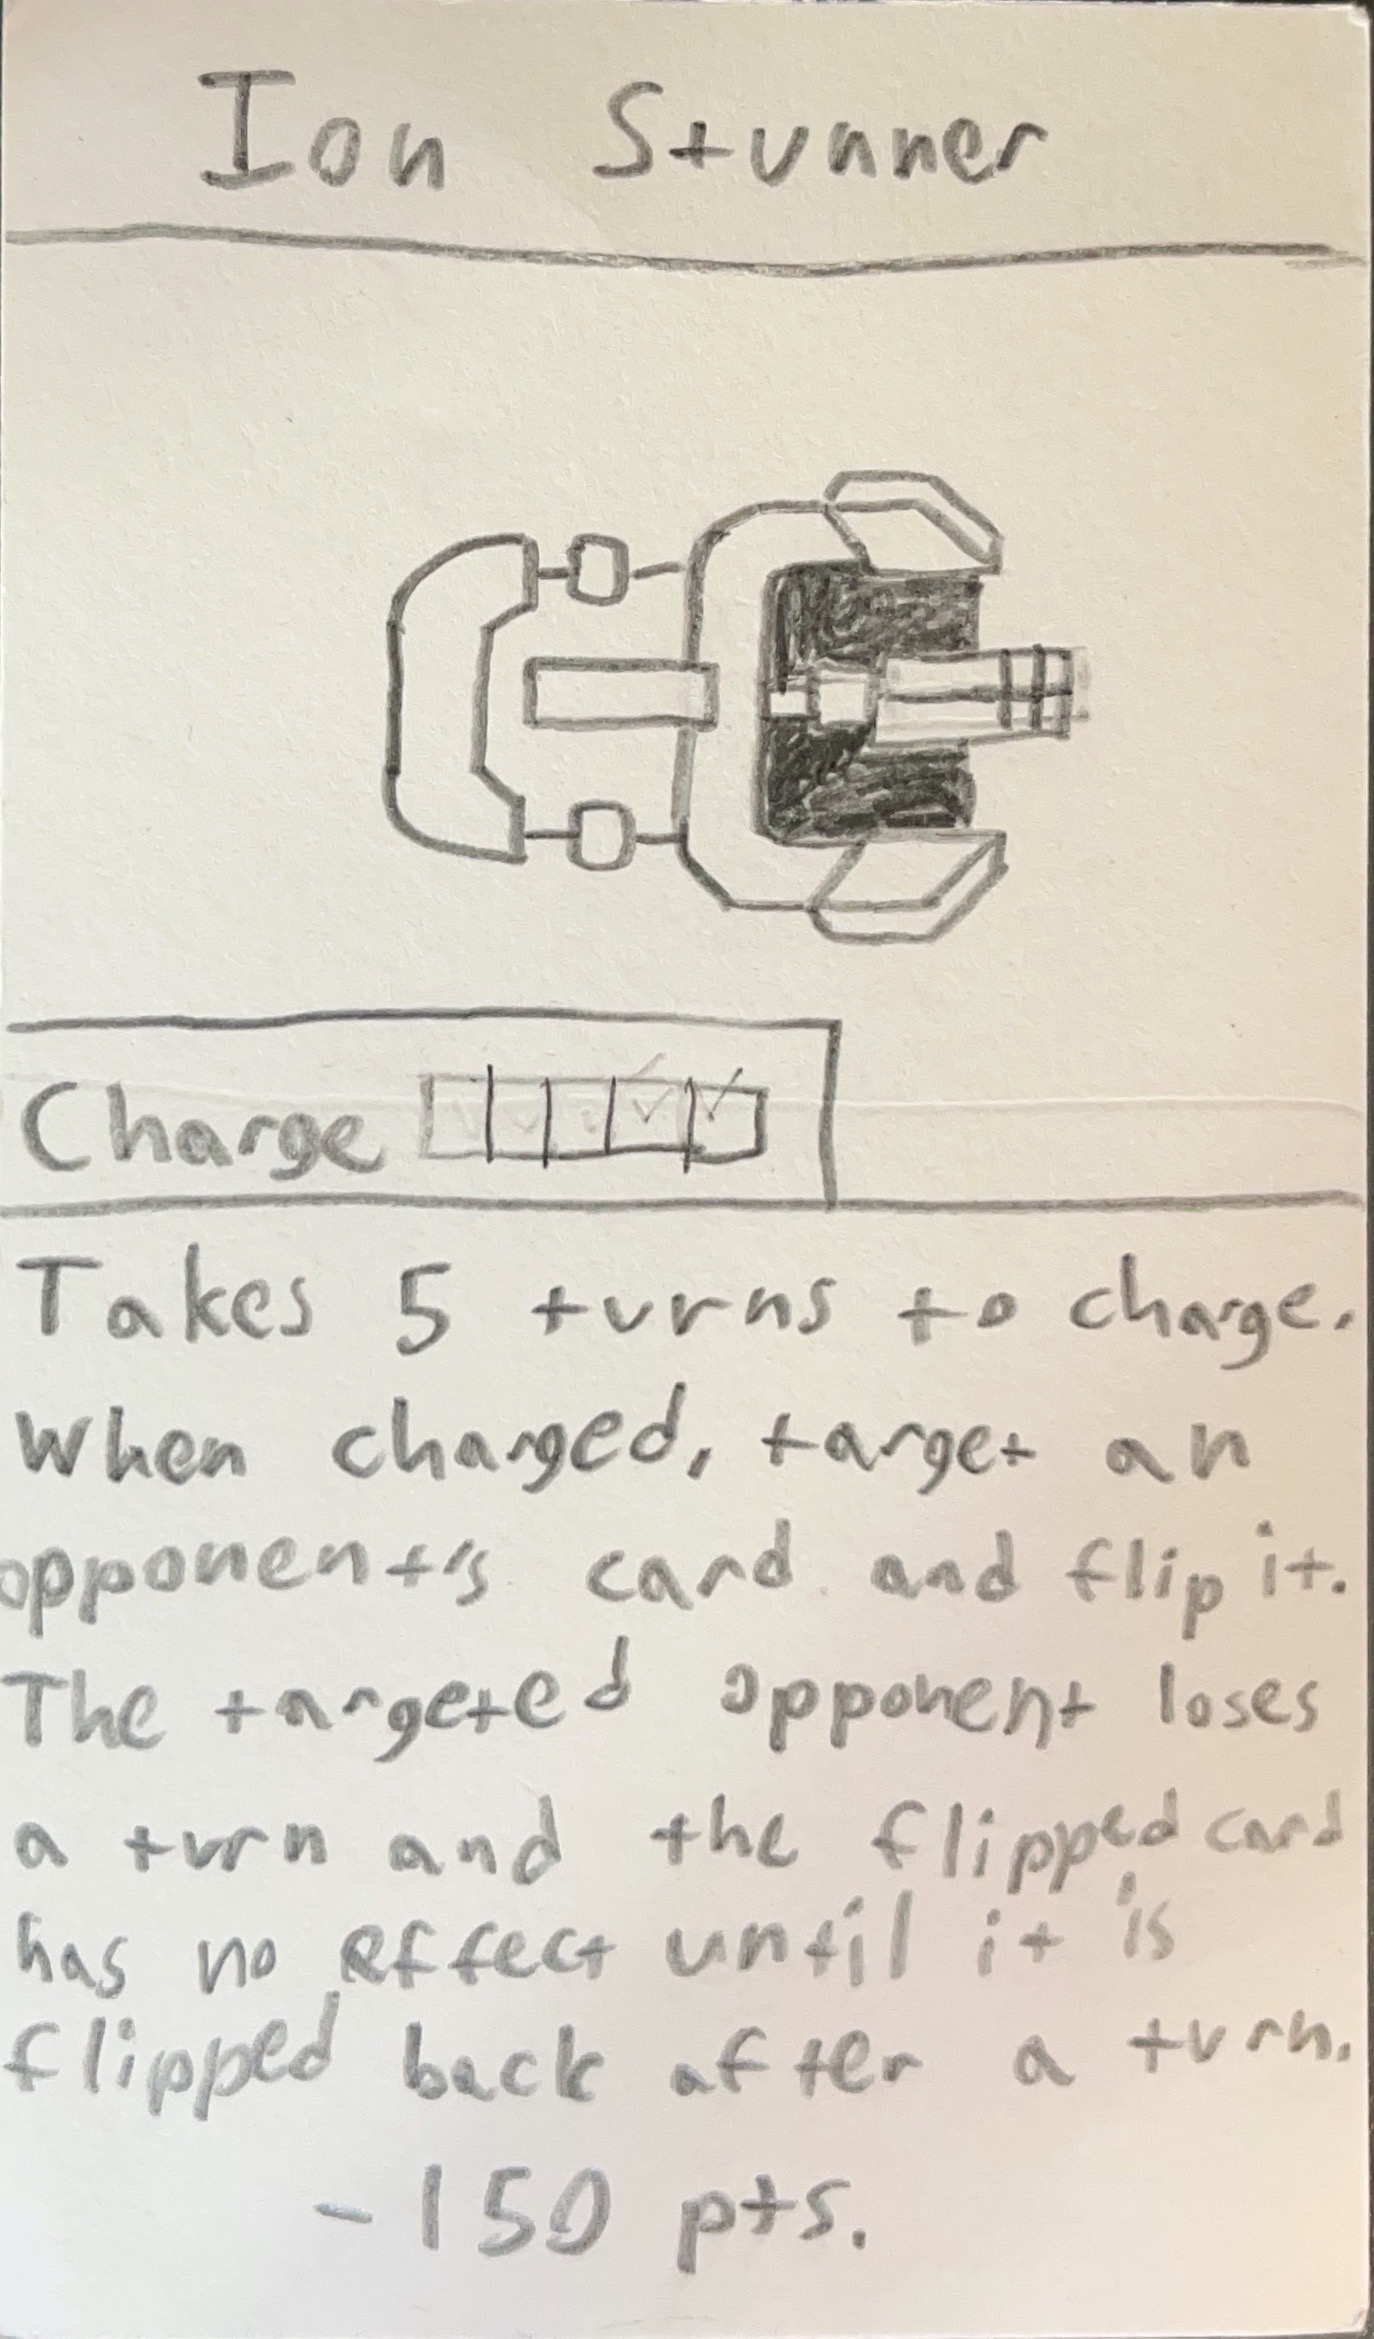 Ion Stunner
Charge
Takes 5 turns to charge.
When charged, target an
opponent's card and flip it.
The targeted opponent loses
a turn and the flipped card
has no effect until it is
flipped back after a turn.
-150 pts.